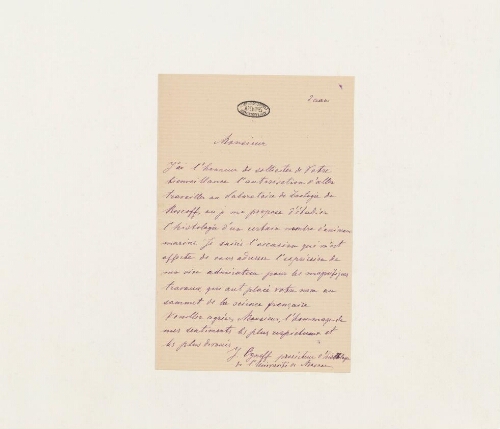 2 mars
Monsieur
J'ai l'honneur de solliciter de Votre
bienveillance l'autorisation d'aller
travailler au Laboratoire de Zoologie de
Roscoff, ou je me propose d'étudier
l'histologie d'un certain nombre d'animaux
marins je saisis l'occasion qui m'est
offerte de vous adresser l'expression de
ma vive admiration pour les magnifiques
travaux qui ont placé votre nom au
sommet de la science française
Veuillez agréer, Monsieur, l'hommage de
mes sentiments les plus respectueux et
les plus dévoués
prosecteur d'
de l'Université de